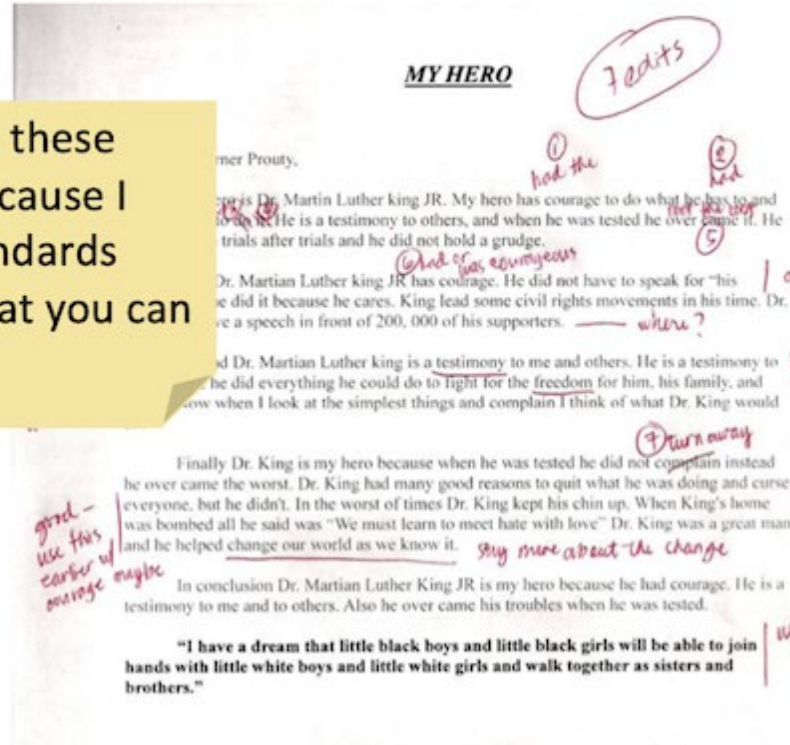 MY HERO
7 edits
these
cause I
ndards
at you can
ner Prouty,
① had the
② had
is Dr. Martin Luther king JR. My hero has courage to do what he has to and
He is a testimony to others, and when he was tested he over came it. He
⑤
trials after trials and he did not hold a grudge.
⑥ had or was courageous
Dr. Martian Luther king JR has courage. He did not have to speak for "his
e did it because he cares. King lead some civil rights movements in his time. Dr.
ve a speech in front of 200, 000 of his supporters. — where?
d Dr. Martian Luther king is a testimony to me and others. He is a testimony to
he did everything he could do to fight for the freedom for him, his family, and
ow when I look at the simplest things and complain I think of what Dr. King would
⑦ turn away
Finally Dr. King is my hero because when he was tested he did not complain instead
he over came the worst. Dr. King had many good reasons to quit what he was doing and curse
everyone, but he didn't. In the worst of times Dr. King kept his chin up. When King's home
was bombed all he said was "We must learn to meet hate with love" Dr. King was a great man
and he helped change our world as we know it. say more about the change
good -
use this
earlier w/
courage maybe
In conclusion Dr. Martian Luther King JR is my hero because he had courage. He is a
testimony to me and to others. Also he over came his troubles when he was tested.
"I have a dream that little black boys and little black girls will be able to join
hands with little white boys and little white girls and walk together as sisters and
brothers."